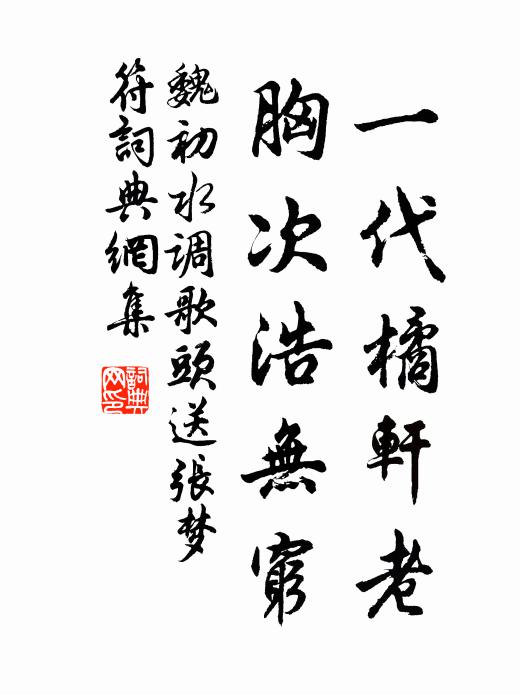 一代橘軒老
胸次浩無窮
魏初水调歌頭送張梦
符詞典網集
詞典网印